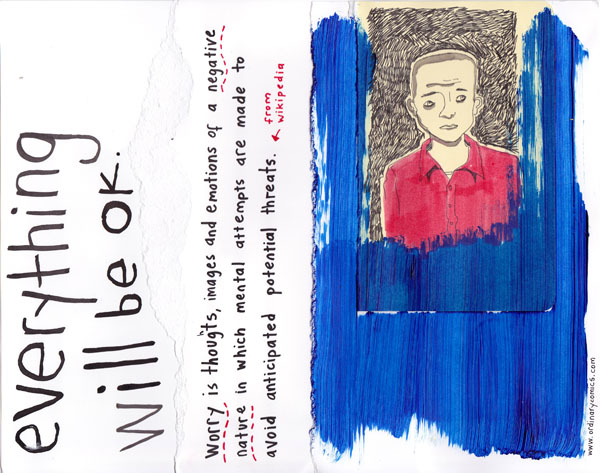 everything
will be ok.
Worry is thoughts, images and emotions of a negative
nature in which mental attempts are made to
avoid anticipated potential threats.
from
wikipedia
www.ordinarycomics.com